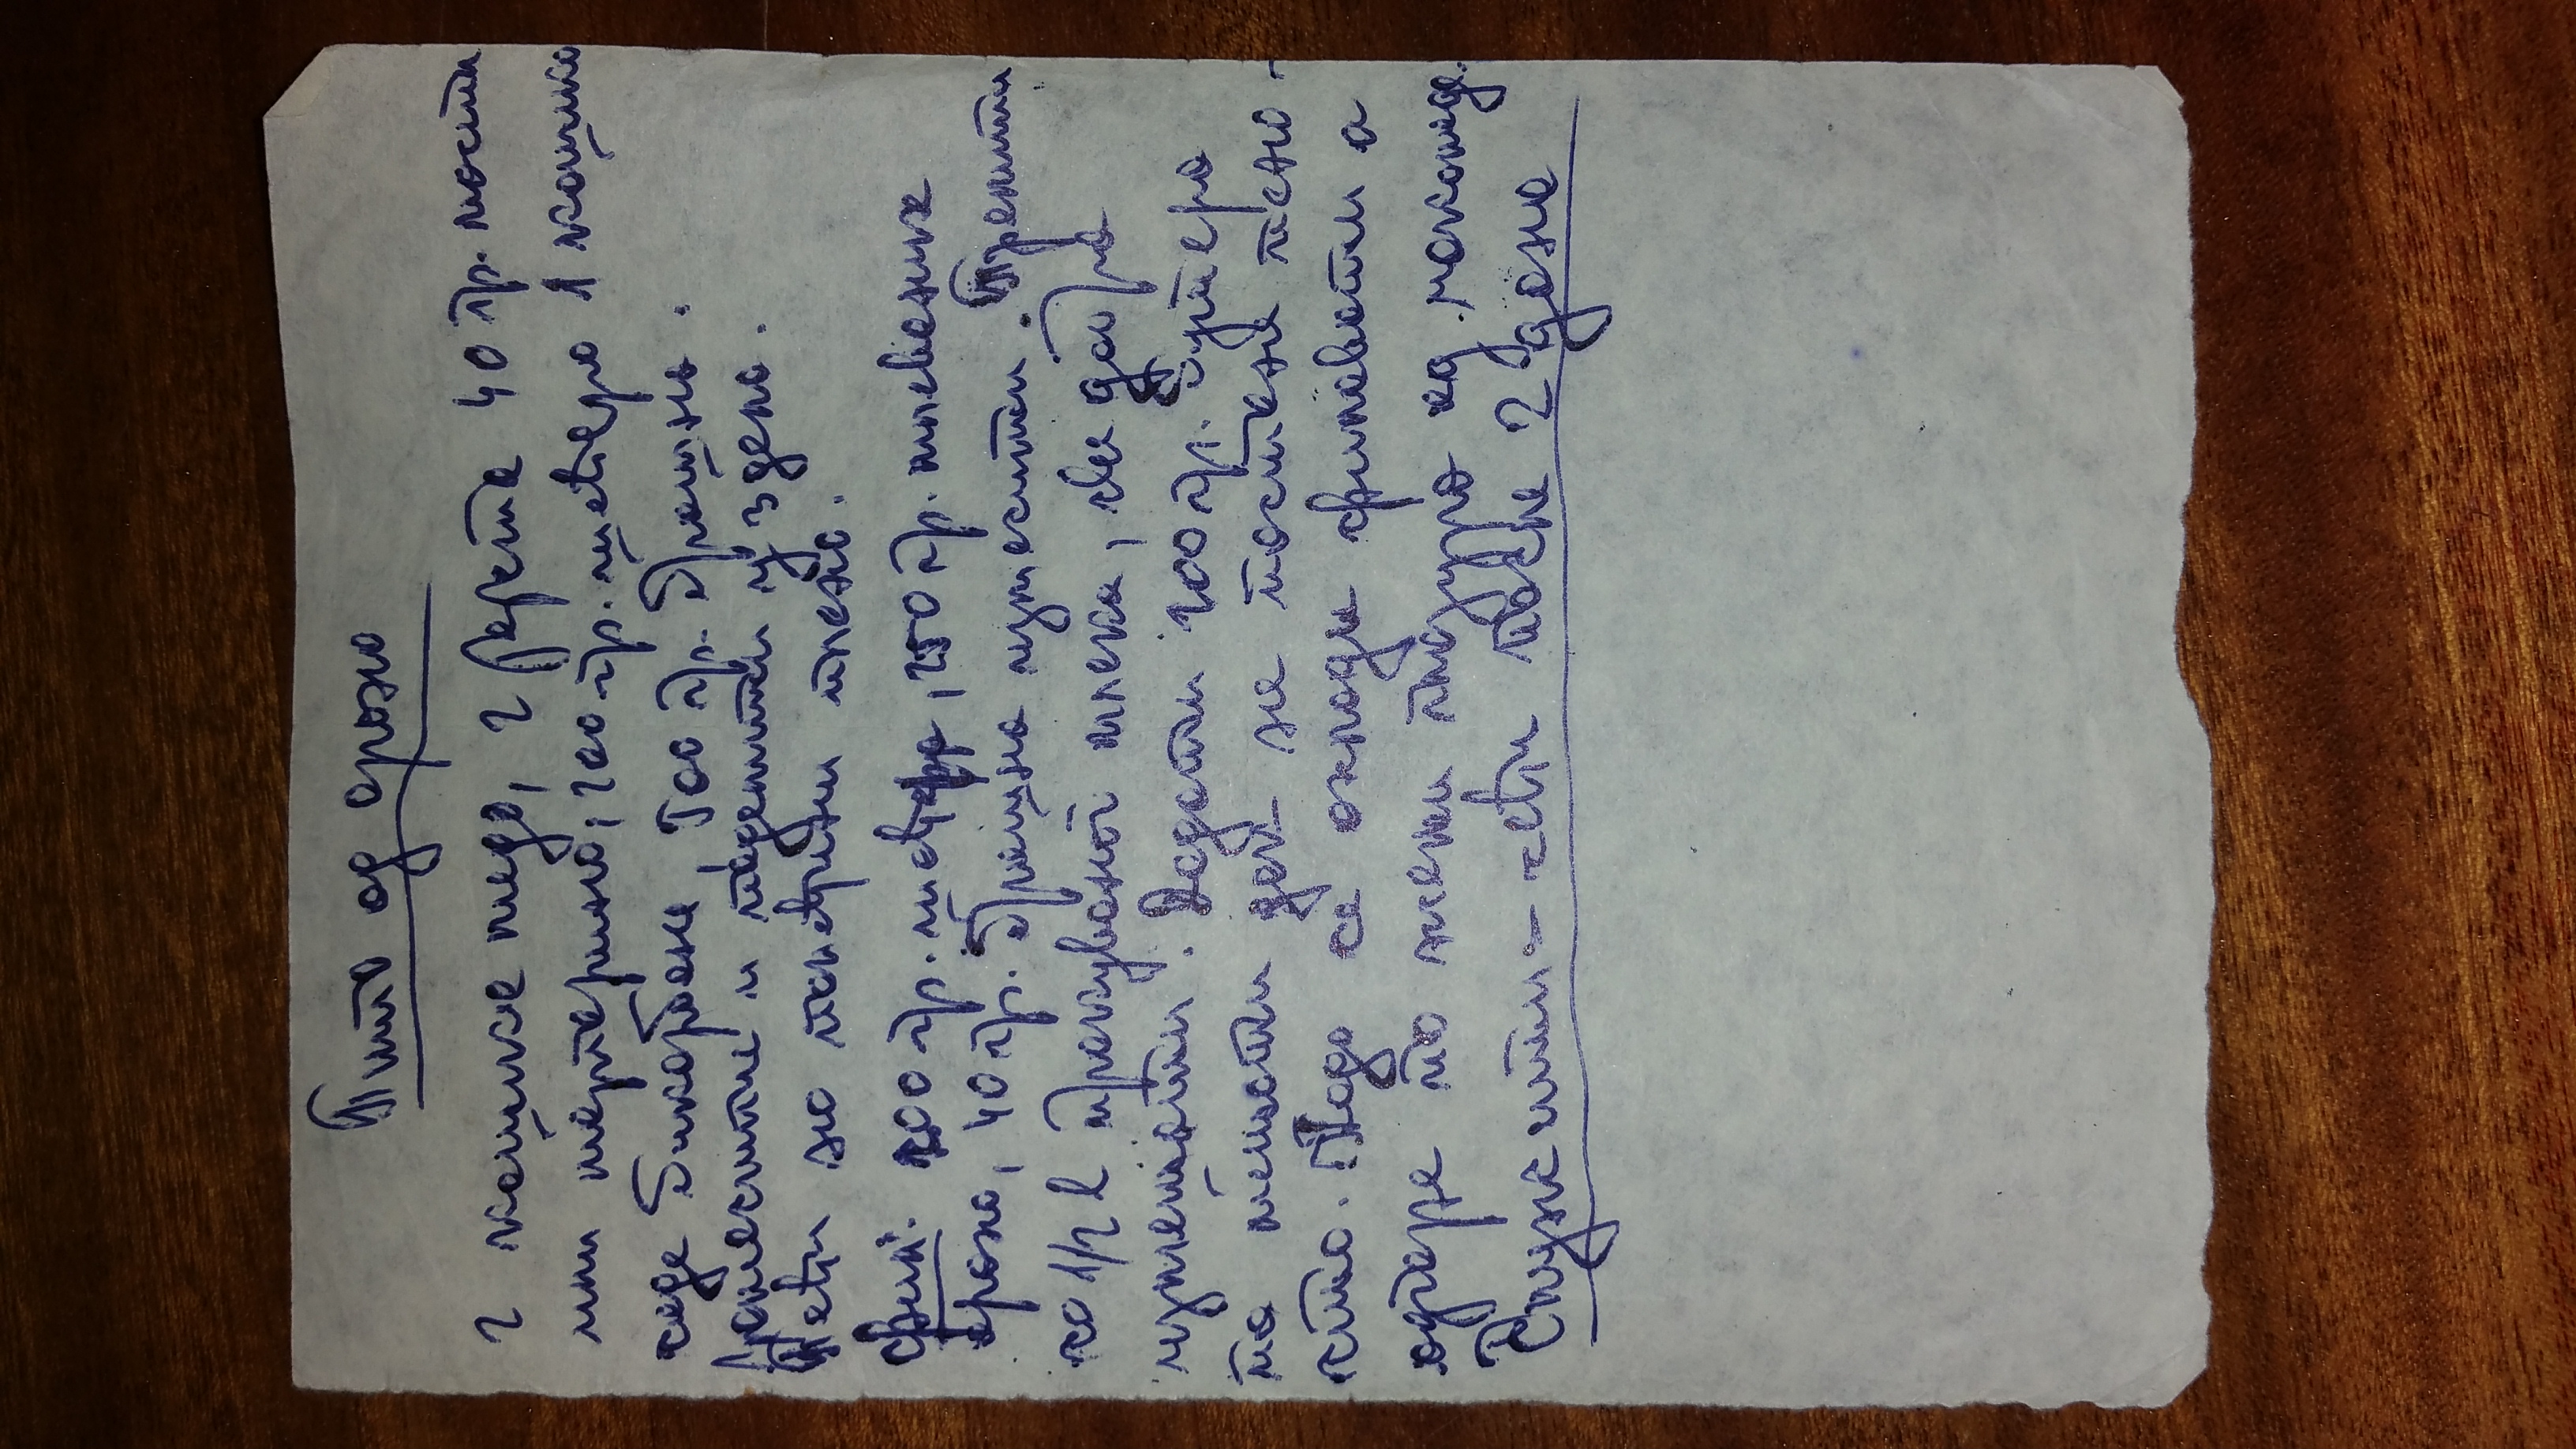 Пита од ораха
2 кашике меда, 2 јајета 40 гр. масти
или маргарина, 200 гр. шећера 1 кашика
соде бикарбоне, 500 гр. брашна.
Замесити и поделити у 3 дела.
Пећи на полеђини плеха.
Фил: 200 гр. шећера, 250 гр. млевених
ораха, 40 гр. брашна измесити. Прелити
са 1/2 l прокуваног млека, све добро
измешати. Додати 200 гр. бутера
па мешати док не постане пено-
сто. Када се охлади филовати а
одгоре по жељи глазура од чоколаде.
Служити-сећи после 2 дана